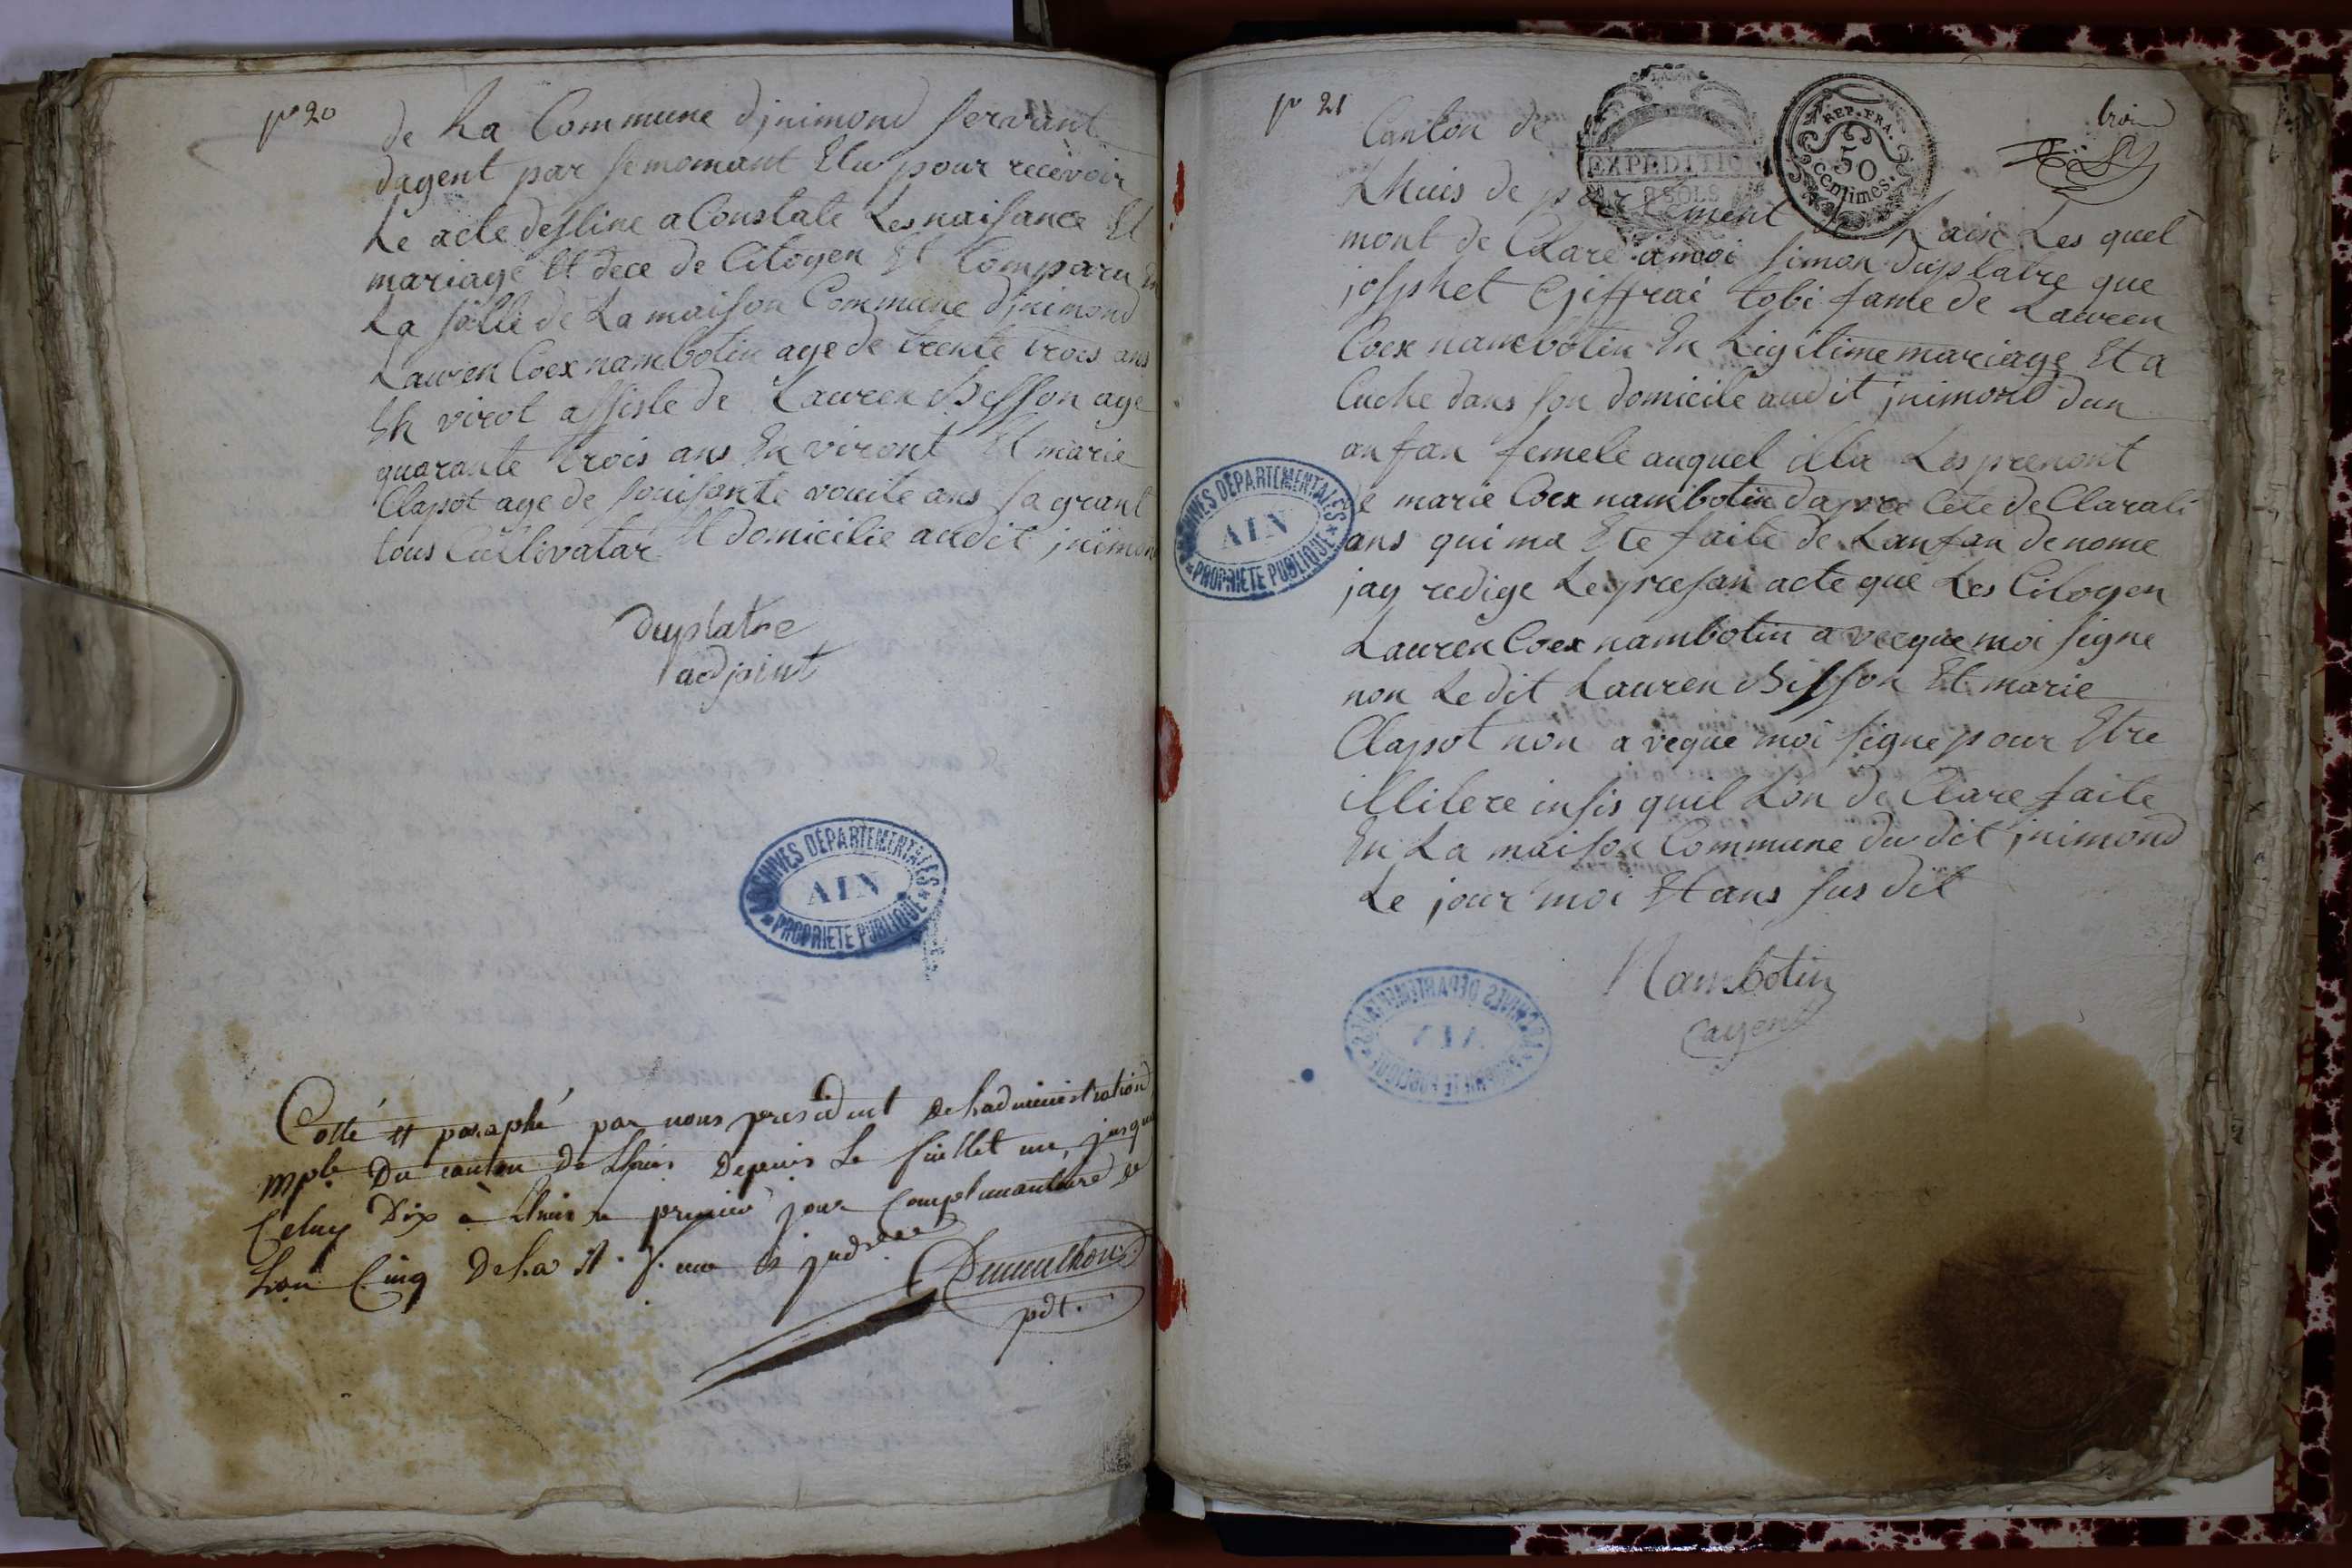 po 20
de La Commune djnimond servant
dagent par semomant Elu pour recevoir
Le acte destine a Constate Les naisance Et
mariage Et dece de Citogen Et Comparu En
La salle de La maison Commune djnimond
Lauren Coex nambotin age de trente trois ans
En virot assiste de Lauren Besson age
quarante trois ans En viront Et marie
Clapot age de souisante vouite ans sa grant
tous Cultivatar Et domicilie audit jnimon
duplatre
adjoint
ARCHIVES DÉPARTEMENTALES
AIN
PROPRIÉTÉ PUBLIQUE
Cotté et paraphé par nous president de Ladministration
mple Du canton De Lhuis Depuis Le feuillet un, jusqua
Celuy Dix à Lhuis le premier jour Complimantaire de
Lan Cinq De La R. f. une et jndble
pdt.
po 21
Canton de
EXPEDITION
8 SOLS
REP. FRA.
50
centimes.
trois
Lhuis de partement de Lain Les quel
mont de Clare a moi simon duplatre que
josphet Giffrai tobi fame de Lauren
Coex nambotin En Legitime mariage Et a
Cuche dans son domicile audit jnimond dun
anfan femele auquel illa Les prenont
de marie Coex nambotin dapre Cete de Clarati
ans quima Ete faite de Lanfan denome
jay redige Le presan acte que Les Citogen
Lauren Coex nambotin a vecque moi signe
non Ledit Lauren Bisson Et marie
Clapot non a veque moi signe pour Etre
illitere insis quil Lon de Clare faite
En La maison Commune du dit jnimond
Le jour moi Et ans sus dit
Nambotin
agent
ARCHIVES DÉPARTEMENTALES
AIN
PROPRIÉTÉ PUBLIQUE